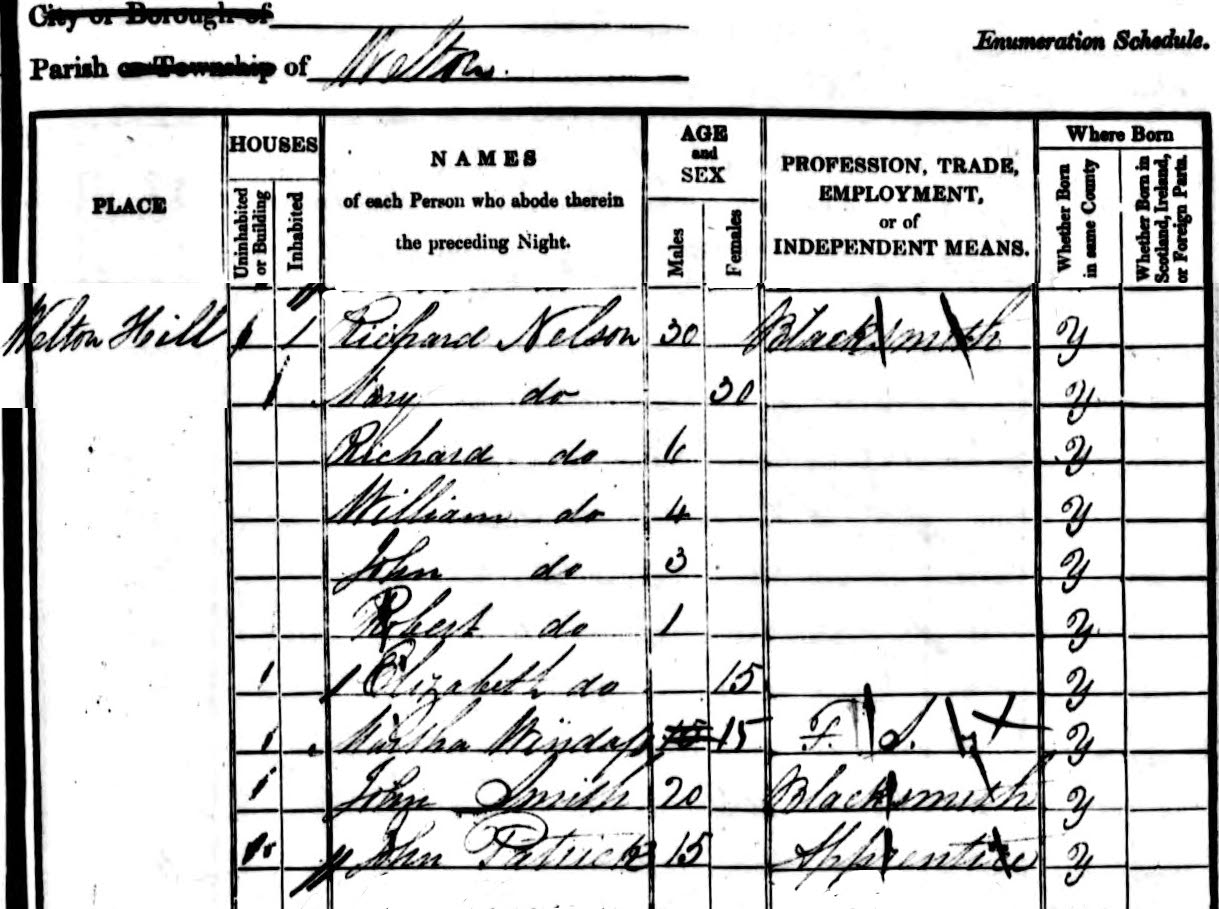 City or Borough of
Parish or Township of Welton.
Enumeration Schedule.
PLACE
HOUSES
Uninhabited or Building
Inhabited
NAMES
of each Person who abode therein
the preceding Night.
AGE
and
SEX
Males
Females
PROFESSION, TRADE,
EMPLOYMENT,
or of
INDEPENDENT MEANS.
Where Born
Whether Born in same County
Whether Born in Scotland, Ireland, or Foreign Parts.
Welton Hill 1 Richard Nelson 30 Blacksmith Y
Mary do 30 Y
Richard do 6 Y
William do 4 Y
John do 3 Y
Robert do 1 Y
Elizabeth do 15 Y
Martha 15 F. S. Y
John Smith 20 Blacksmith Y
John Patrick 15 Apprentice Y